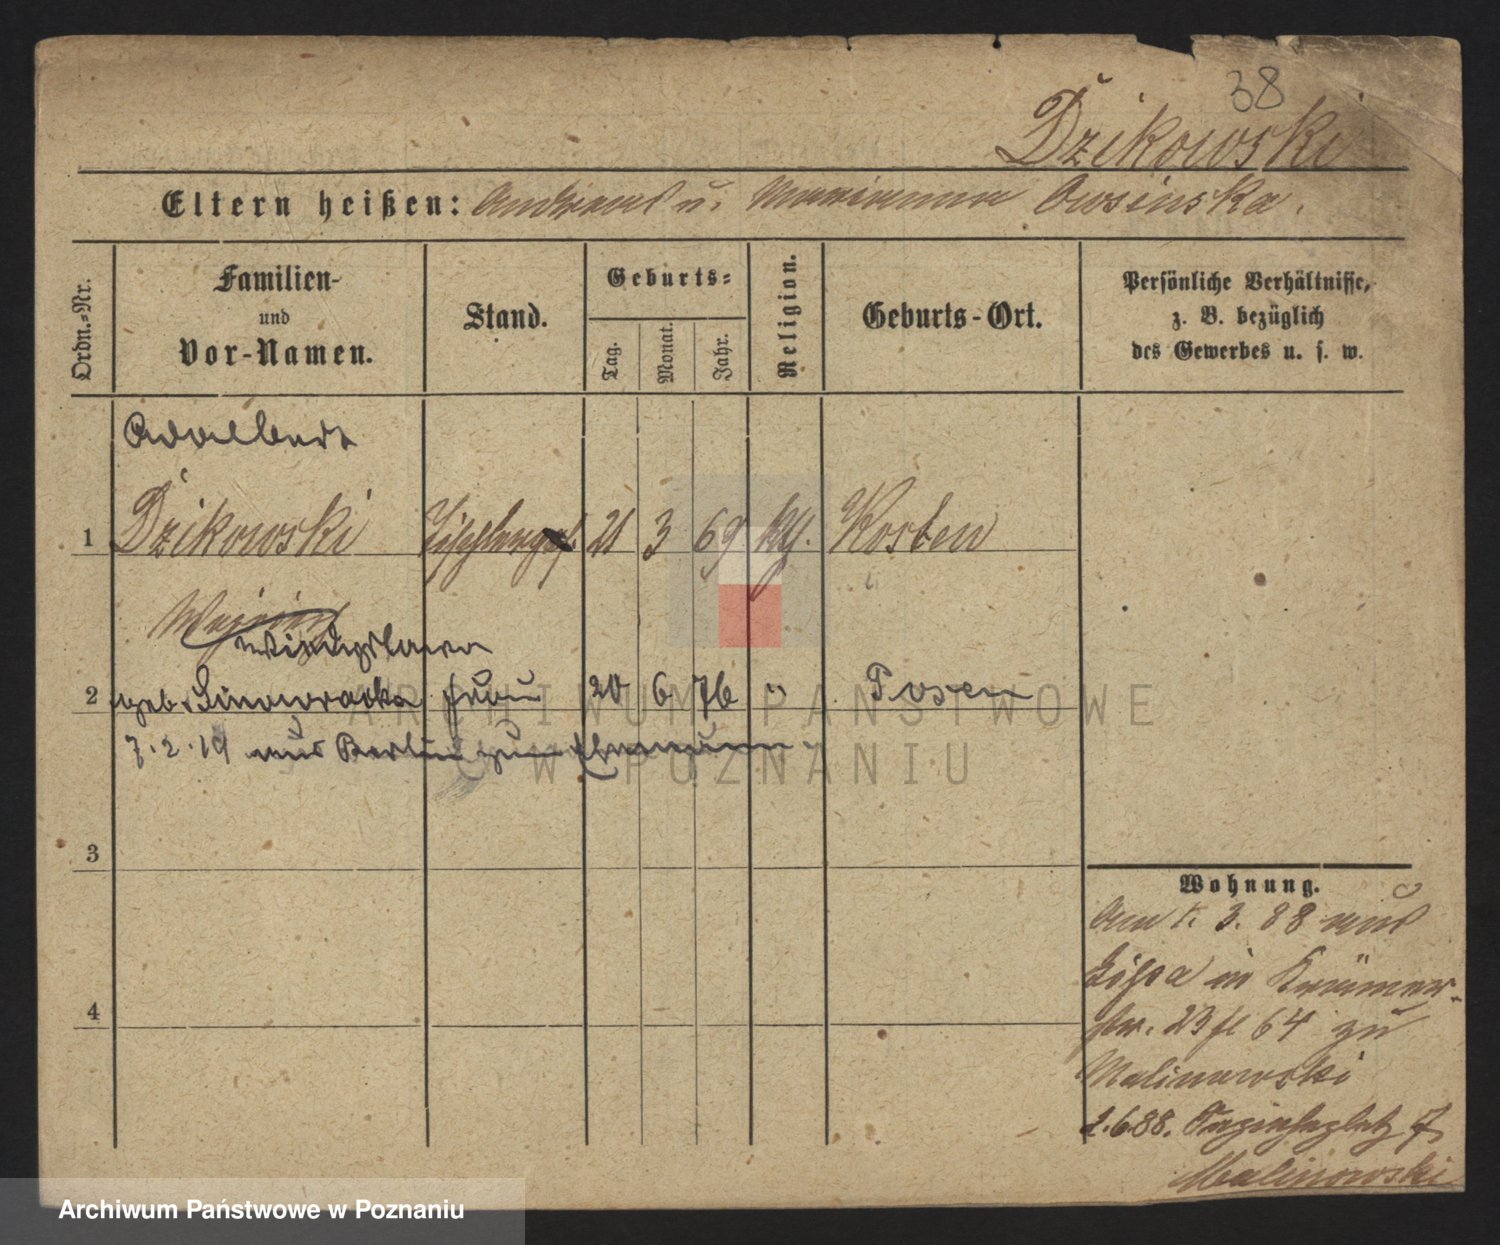 38
Dzikowski
Eltern heißen: Andreas u. Marianna Owsinska.
Ordn.-Nr.
Familien-
und
Vor-Namen.
Stand.
Geburts-
Tag.
Monat.
Jahr.
Religion.
Geburts-Ort.
Persönliche Verhältnisse,
z. B. bezüglich
des Gewerbes u. s. w.
Adalbert
1 Dzikowski Tischlerges. 21 3 69 kth. Kosten
2 geb. Frau 20 6 76 " Posen
7.2.19 aus Berlin zum Ehemann
3
4
Wohnung.
Am 1. 3. 88 aus
Lissa in Krämer-
str. 23 64 zu
Malinowski
2.6.88. 7
Malinowski
ARCHIWUM PAŃSTWOWE
W POZNANIU
Archiwum Państwowe w Poznaniu